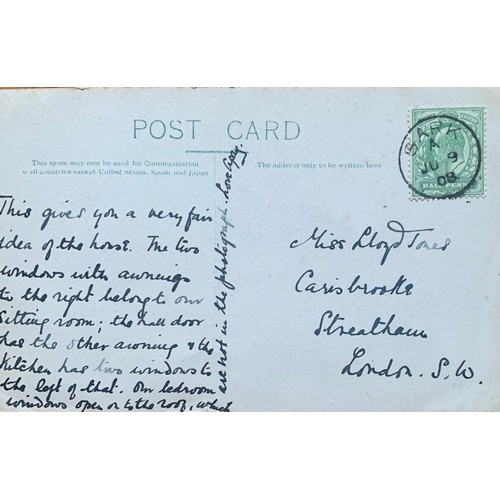 POST CARD
This space may now be used for Communication
to all countries except United States, Spain and Japan
The address only to be written here
BARK
A
JU 9
08
HALFPENNY
This gives you a very fair
idea of the house. The two
windows with awnings
to the right belong to our
sitting room; the hall door
has the other awning & the
kitchen has two windows to
the left of that. Our bedroom
windows open on to the roof, which
are not in the photograph. Love
Miss Lloyd Jones
Carisbrooke
Streatham
London. S.W.